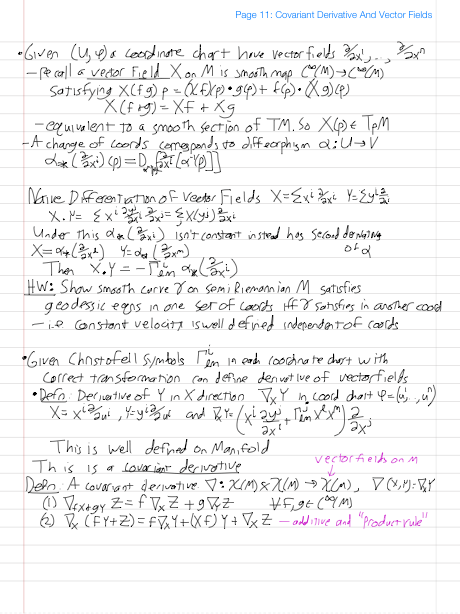 Page 11: Covariant Derivative And Vector Fields
• Given (U, φ) a coordinate chart have vector fields ∂/∂x¹, ..., ∂/∂xⁿ
– recall a vector field X on M is smooth map C^∞(M) → C^∞(M)
satisfying X(fg)p = (Xf)(p)·g(p) + f(p)·(Xg)(p)
X(f+g) = Xf + Xg
– equivalent to a smooth section of TM. So X(p) ∈ TpM
– A change of coords corresponds to diffeorphism α: U → V
α_*(∂/∂xⁱ)(p) = D
Naive Differentiation of Vector Fields X = Σxⁱ ∂/∂xⁱ Y = Σyⁱ ∂/∂xⁱ
X.Y = Σ xⁱ ∂yʲ/∂xⁱ ∂/∂xʲ = Σ X(yʲ) ∂/∂xʲ
Under this α_*(∂/∂xⁱ) isn't constant instead has second derivatives
of α
X = α_*(∂/∂xˡ) Y = α_*(∂/∂xᵐ)
Then X.Y = –Γⁱ_lm α_*(∂/∂xⁱ)
HW: Show smooth curve γ on semi Riemannian M satisfies
geodessic eqns in one set of coords iff γ satisfies in another coord
– i.e constant velocity is well defined independent of coords
• Given Christofell symbols Γⁱ_lm in each coordinate chart with
correct transformation can define derivative of vectorfields
• Defn: Derivative of Y in X direction ∇_X Y in coord chart φ = (u¹, ..., uⁿ)
X = xⁱ ∂/∂uⁱ, Y = yⁱ ∂/∂uⁱ and ∇_X Y = (xⁱ ∂yʲ/∂xⁱ + Γʲ_lm xˡ yᵐ) ∂/∂xʲ
This is well defined on Manifold
This is a covariant derivative
vector fields on M
Defn: A covariant derivative ∇: X(M) × X(M) → X(M), ∇(X,Y) = ∇_X Y
(1) ∇_{fX+gY} Z = f∇_X Z + g∇_Y Z ∀ f, g ∈ C^∞(M)
(2) ∇_X (fY+Z) = f∇_X Y + (Xf)Y + ∇_X Z – additive and "product rule"